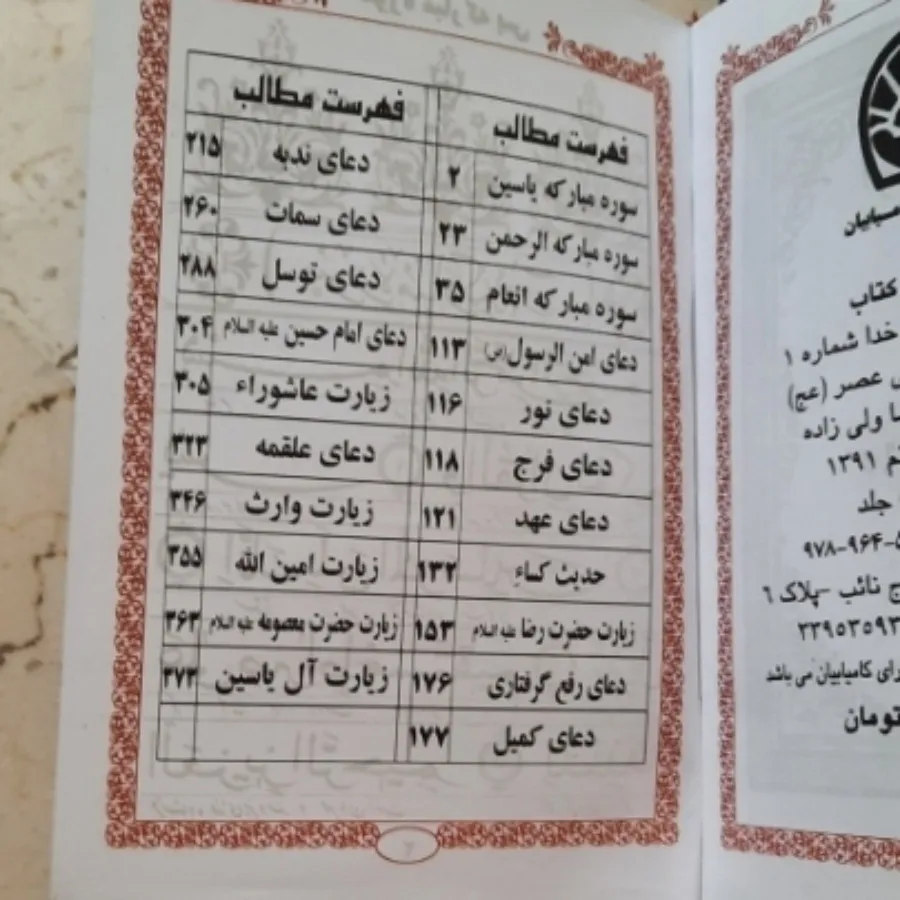 فهرست مطالب
سوره مبارکه یاسین ۲
سوره مبارکه الرحمن ۲۳
سوره مبارکه انعام ۳۵
دعای امن الرسول(ص) ۱۱۳
دعای نور ۱۱۶
دعای فرج ۱۱۸
دعای عهد ۱۲۱
حدیث کساء ۱۳۲
زیارت حضرت رضا علیه السلام ۱۵۳
دعای رفع گرفتاری ۱۷۶
دعای کمیل ۱۷۷
فهرست مطالب
دعای ندبه ۲۱۵
دعای سمات ۲۶۰
دعای توسل ۲۸۸
دعای امام حسین علیه السلام ۳۰۴
زیارت عاشوراء ۳۰۵
دعای علقمه ۳۲۳
زیارت وارث ۳۴۶
زیارت امین الله ۳۵۵
زیارت حضرت معصومه علیه السلام ۳۶۳
زیارت آل یاسین ۳۷۳
کتاب
خدا شماره ۱
عصر (عج)
ولی زاده
۱۳۹۱
جلد
۹۷۸-۹۶۴-
نائب -پلاک ۶
۲۲۹۵۳۵۹۳
کامیابیان می باشد
تومان